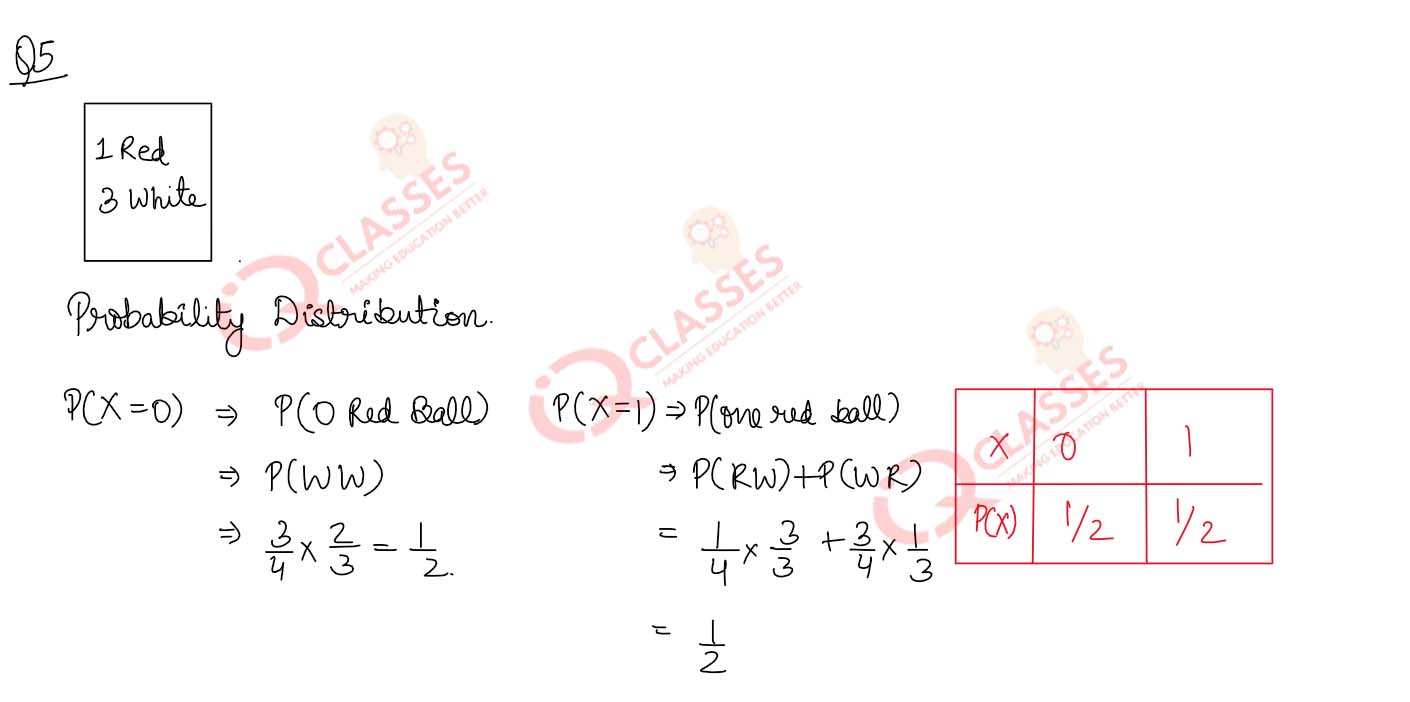 Q5
1 Red
3 White
Probability Distribution.
P(X=0) ⇒ P(0 Red Ball)
⇒ P(WW)
⇒ 3/4 × 2/3 = 1/2.
P(X=1) ⇒ P(one red ball)
⇒ P(RW)+P(WR)
= 1/4 × 3/3 + 3/4 × 1/3
= 1/2
X 0 1
P(X) 1/2 1/2
iQ CLASSES
MAKING EDUCATION BETTER
iQ CLASSES
MAKING EDUCATION BETTER
iQ CLASSES
MAKING EDUCATION BETTER